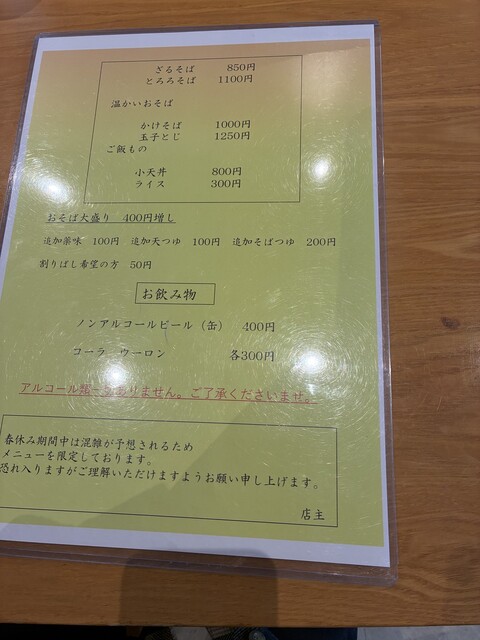 ざるそば 850円
とろろそば 1100円
温かいおそば
かけそば 1000円
玉子とじ 1250円
ご飯もの
小天丼 800円
ライス 300円
おそば大盛り 400円増し
追加薬味 100円 追加天つゆ 100円 追加そばつゆ 200円
割りばし希望の方 50円
お飲み物
ノンアルコールビール（缶） 400円
コーラ ウーロン 各300円
アルコール類 ありません。ご了承くださいませ。
春休み期間中は混雑が予想されるため
メニューを限定しております。
恐れ入りますがご理解いただけますようお願い申し上げます。
店主